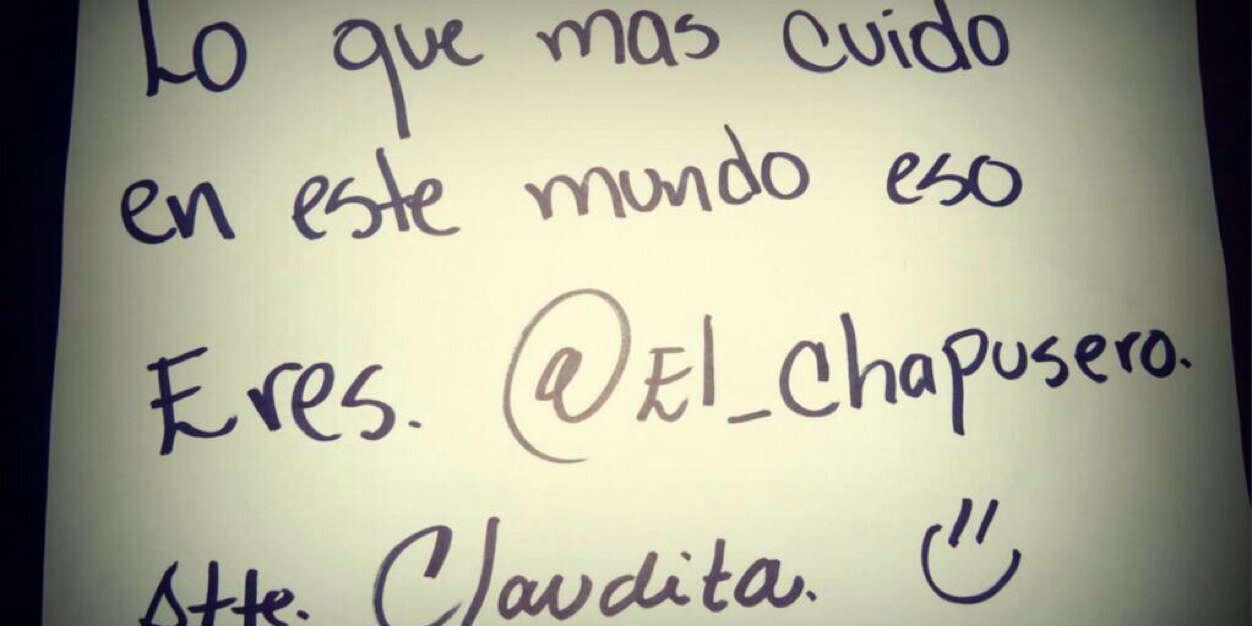 Lo que mas cuido
en este mundo eso
Eres. @El_Chapusero.
Atte. Claudita.